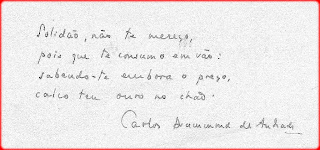 Solidão, não te mereço,
pois que te consumo em vão:
sabendo-te embora o preço,
calco teu ouro no chão.
Carlos Drummond de Andrade